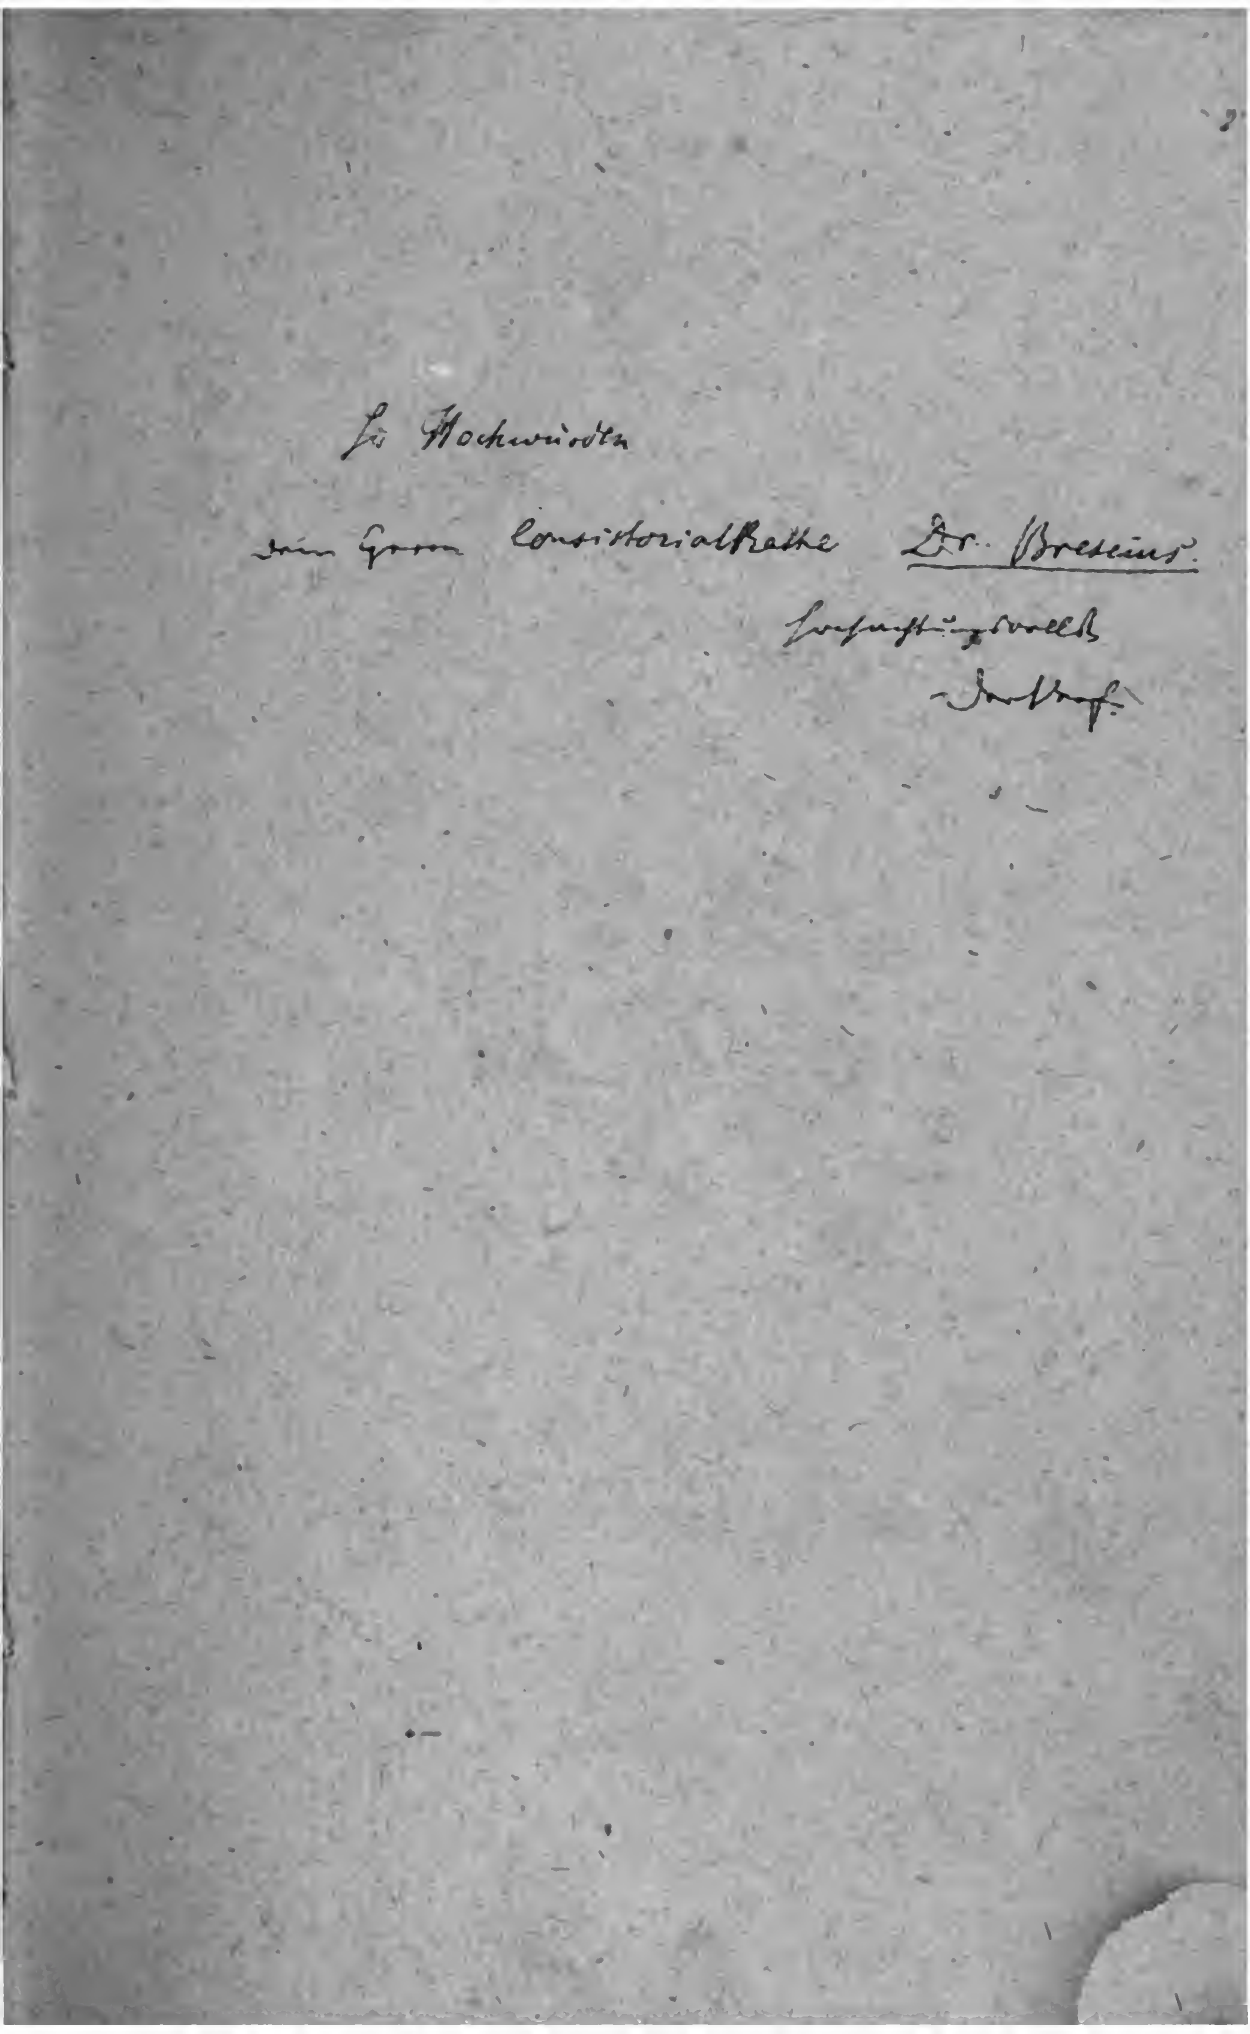 Sr Hochwürden
dem Herrn ConsistorialRathe Dr. Brescius.
hochachtungsvollst
der Verf.